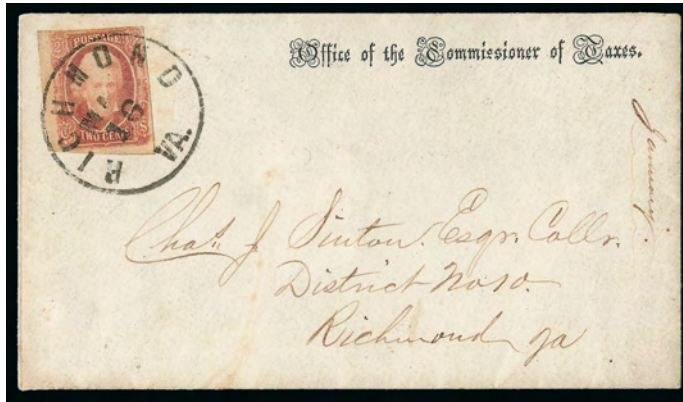 POSTAGE
TWO CENTS
RICHMOND
VA.
Office of the Commissioner of Taxes.
January.
Chas. J Sinton. Esqr. Collr.
District No 10.
Richmond Va